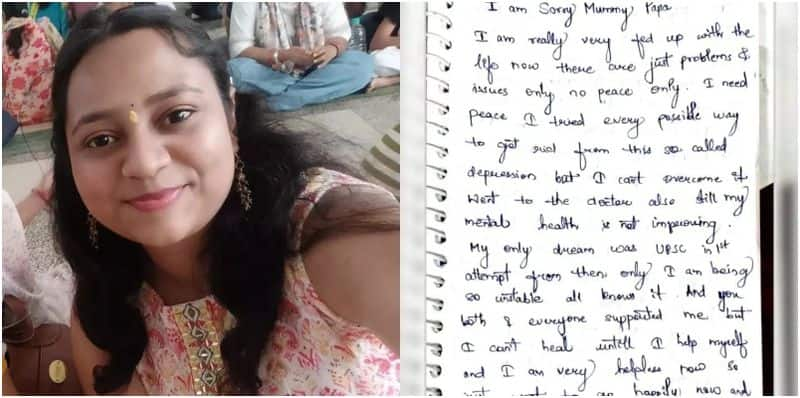 I am Sorry Mummy Papa
I am really very fed up with the
life now there are just problems &
issues only no peace only. I need
peace I tried every possible way
to get rid from this so called
depression but I can't overcome it
went to the doctor also still my
mental health is not improving.
My only dream was UPSC in 1st
attempt from then only I am being
so unstable all knows it. And you
both & everyone supported me but
I can't heal untill I help myself
and I am very helpless now so
just want to go happily now and